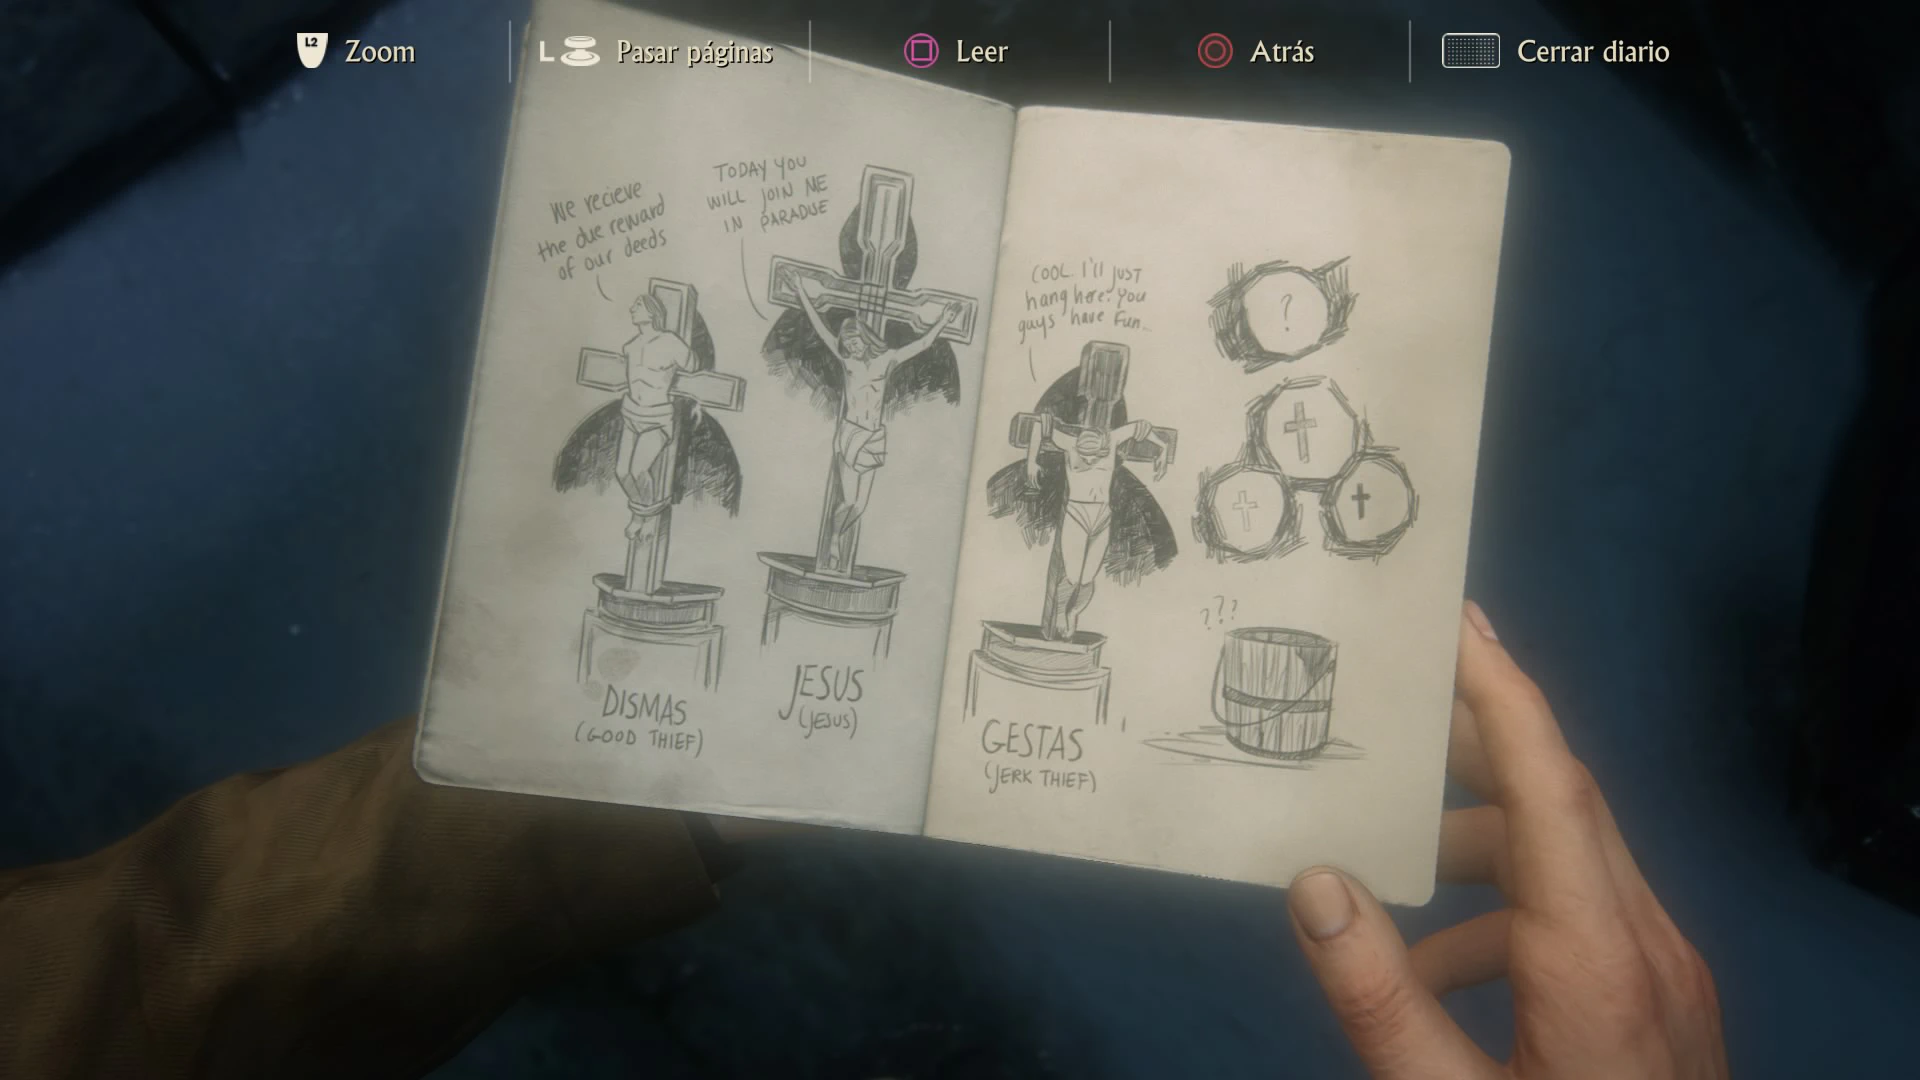 L2 Zoom
L Pasar páginas
Leer
Atrás
Cerrar diario
We recieve
the due reward
of our deeds
TODAY YOU
WILL JOIN ME
IN PARADISE
DISMAS
(GOOD THIEF)
JESUS
(JESUS)
COOL. I'll JUST
hang here. You
guys have fun...
GESTAS
(JERK THIEF)
?
???